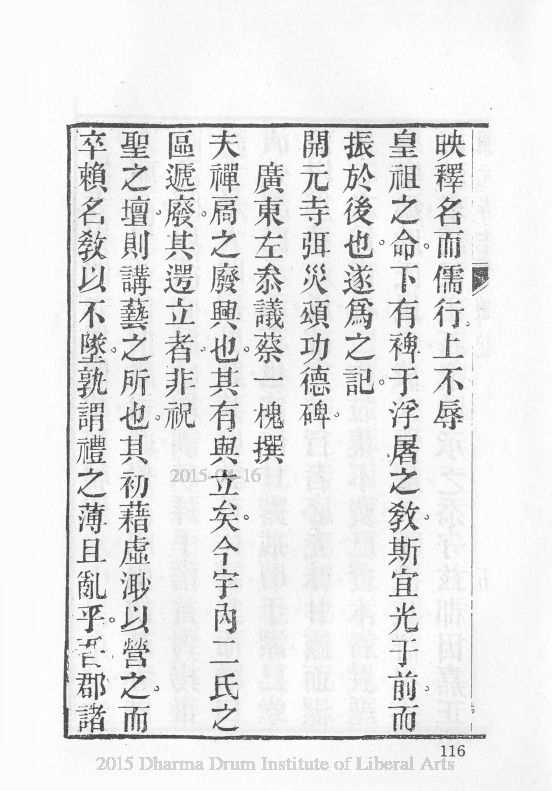 映釋名而儒行上不辱
皇祖之命下有裨于浮屠之敎斯宜光于前而
振於後也遂爲之記
開元寺弭災頌功德碑
廣東左叅議蔡一槐撰
夫禪扃之廢興也其有與立矣今宇內二氏之
區遞廢其遝立者非祝
聖之壇則講藝之所也其初藉虛渺以營之而
卒賴名敎以不墜孰謂禮之薄且亂乎吾郡諸
116
2015-04-16
2015 Dharma Drum Institute of Liberal Arts